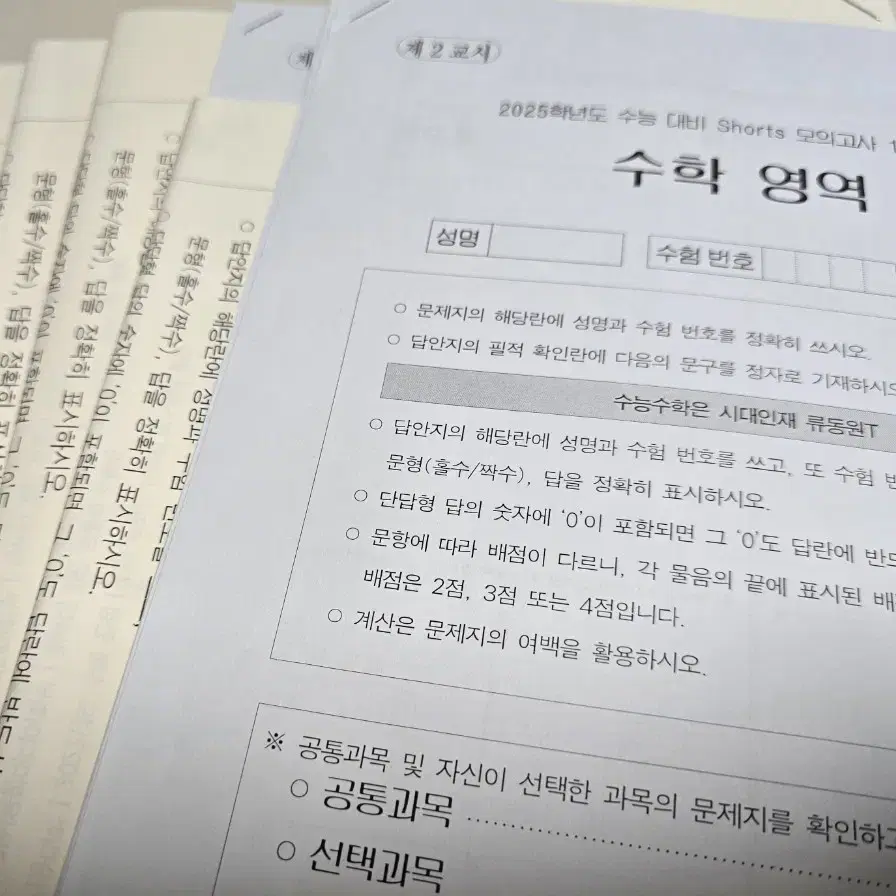 제 2 교시
2025학년도 수능 대비 Shorts 모의고사 1
수학 영역
성명
수험 번호
○ 문제지의 해당란에 성명과 수험 번호를 정확히 쓰시오.
○ 답안지의 필적 확인란에 다음의 문구를 정자로 기재하시오
수능수학은 시대인재 류동원T
○ 답안지의 해당란에 성명과 수험 번호를 쓰고, 또 수험 번
문형(홀수/짝수), 답을 정확히 표시하시오.
○ 단답형 답의 숫자에 '0'이 포함되면 그 '0'도 답란에 반드
○ 문항에 따라 배점이 다르니, 각 물음의 끝에 표시된 배
배점은 2점, 3점 또는 4점입니다.
○ 계산은 문제지의 여백을 활용하시오.
※ 공통과목 및 자신이 선택한 과목의 문제지를 확인하고
○ 공통과목
○ 선택과목
제
○ 답안지의 해당란에 성명과 수험 번호를
문형(홀수/짝수), 답을 정확히 표시하시오.
문형(홀수/짝수), 답을 정확히 표시하시오.
문형(홀수/짝수), 답을 정확히